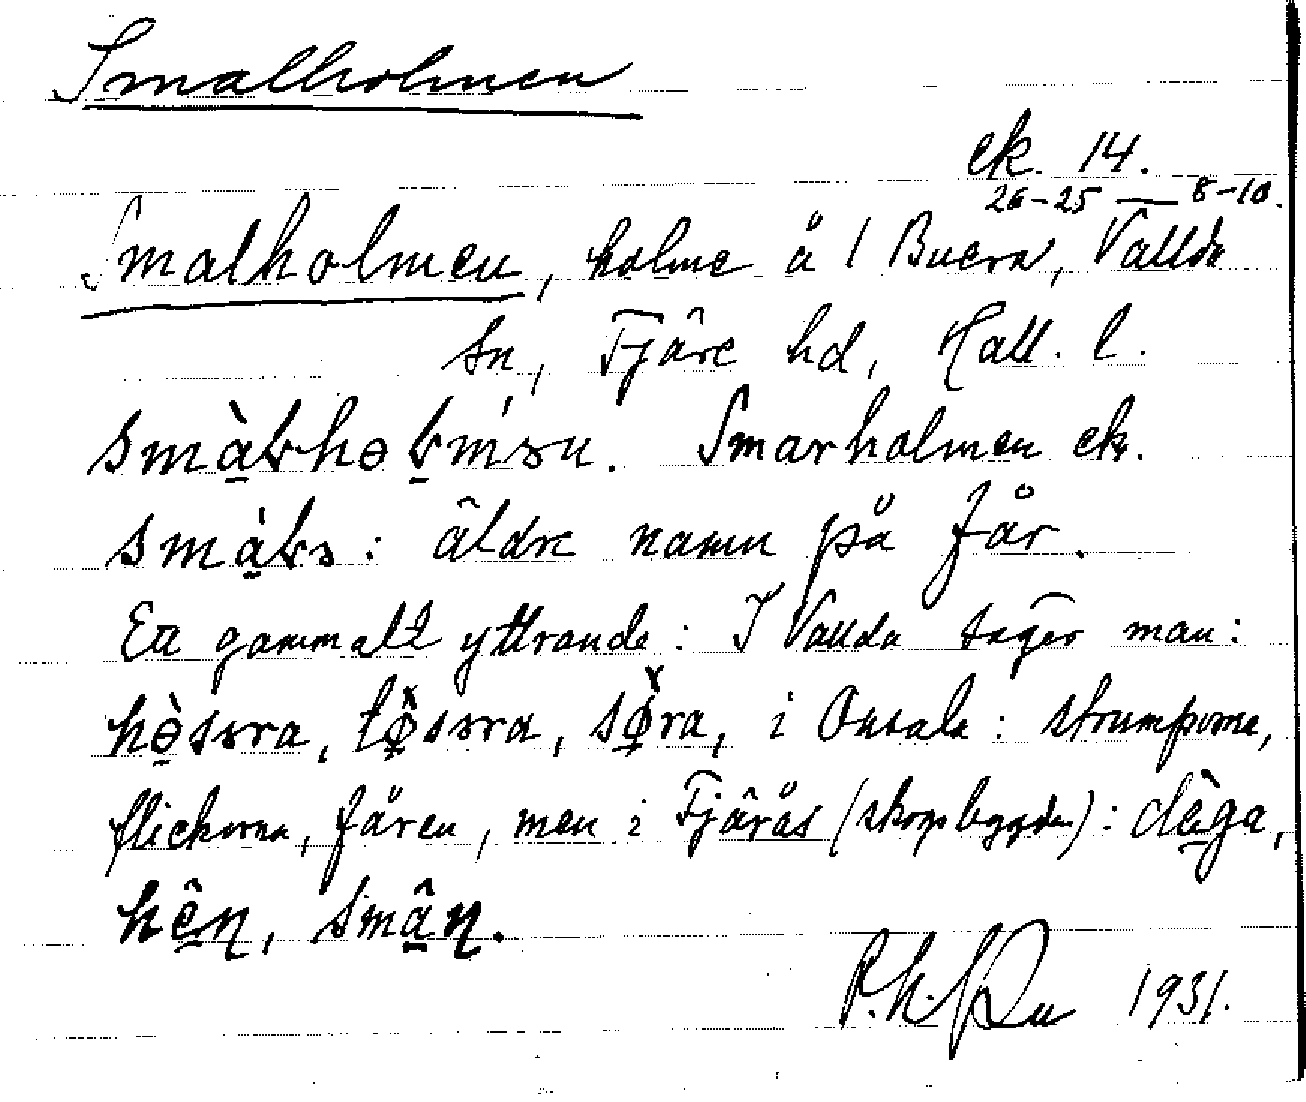 Smalholmen
ek. 14.
26-25 — 8-10.
Smalholmen, holme å 1 Buera, Vallda
sn, Fjäre hd, Hall. l.
Smarholmen ek.
: äldre namn på får.
Ett gammalt yttrande: I Vallda säger man:
hòsera, tø̀sera, sø̀ra, i Onsala: strumporna,
flickorna, fåren, men i Fjärås (skogsbygden): dàga,
hên, smân.
1931.